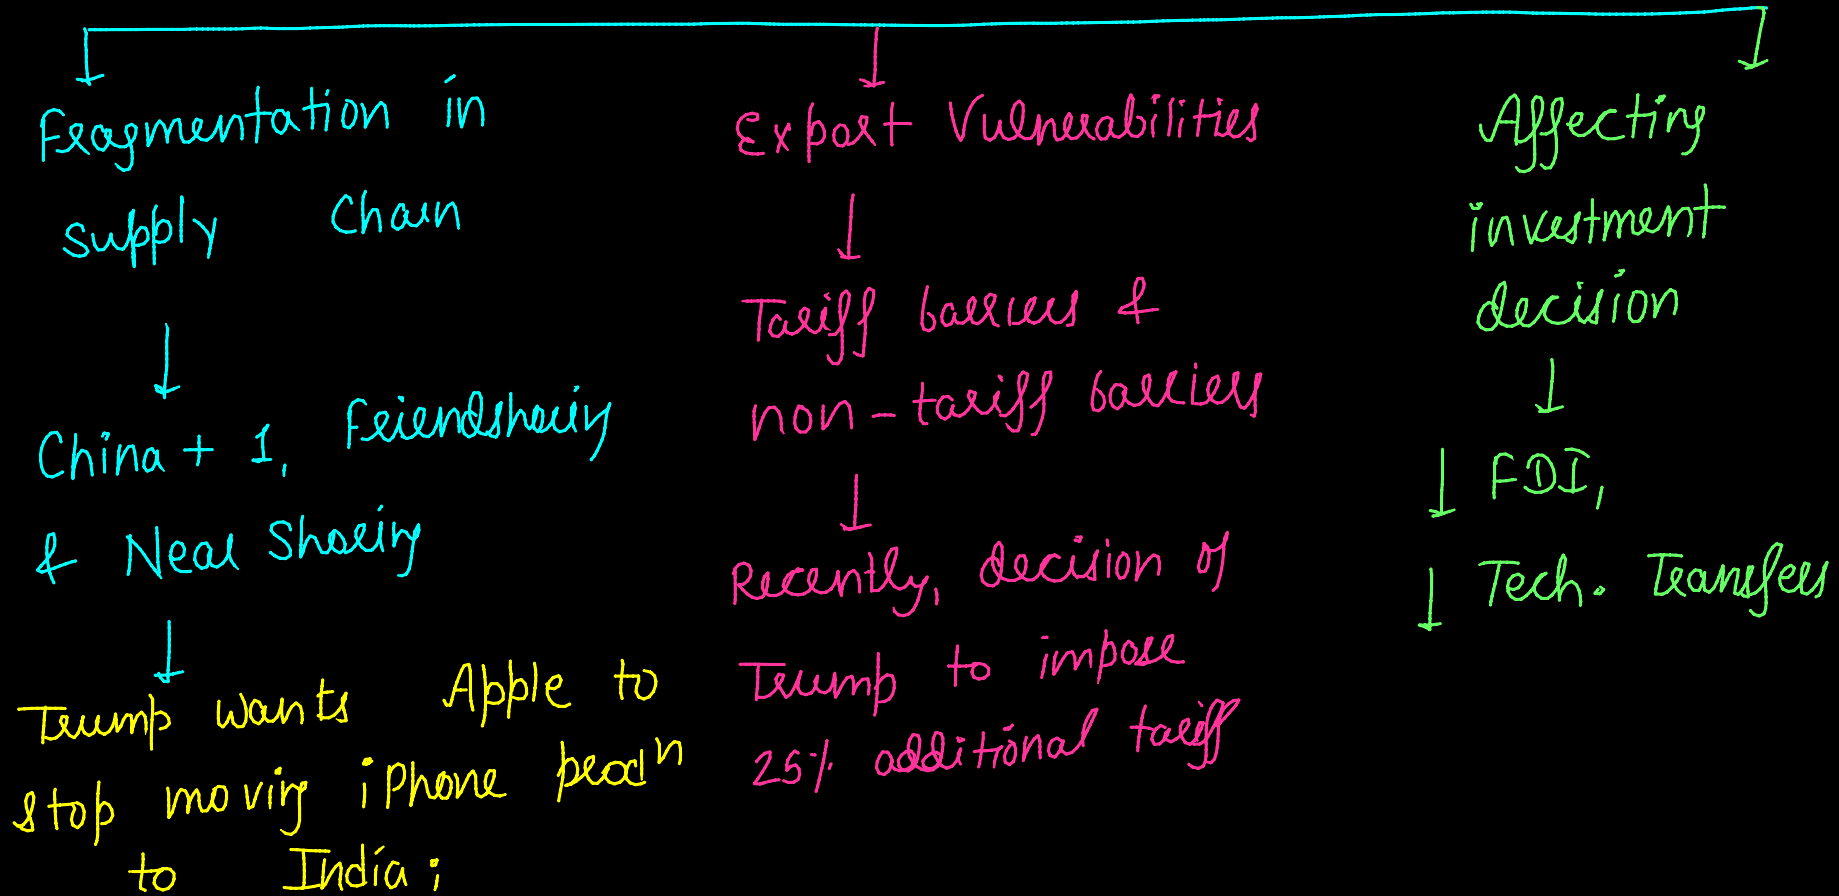 Fragmentation in
supply Chain
↓
China + 1, Friendshoring
& Near Shoring
↓
Trump wants Apple to
stop moving iPhone prodn
to India;
Export Vulnerabilities
↓
Tariff barriers &
non-tariff barriers
↓
Recently, decision of
Trump to impose
25% additional tariff
Affecting
investment
decision
↓
↓ FDI,
↓ Tech. Transfers